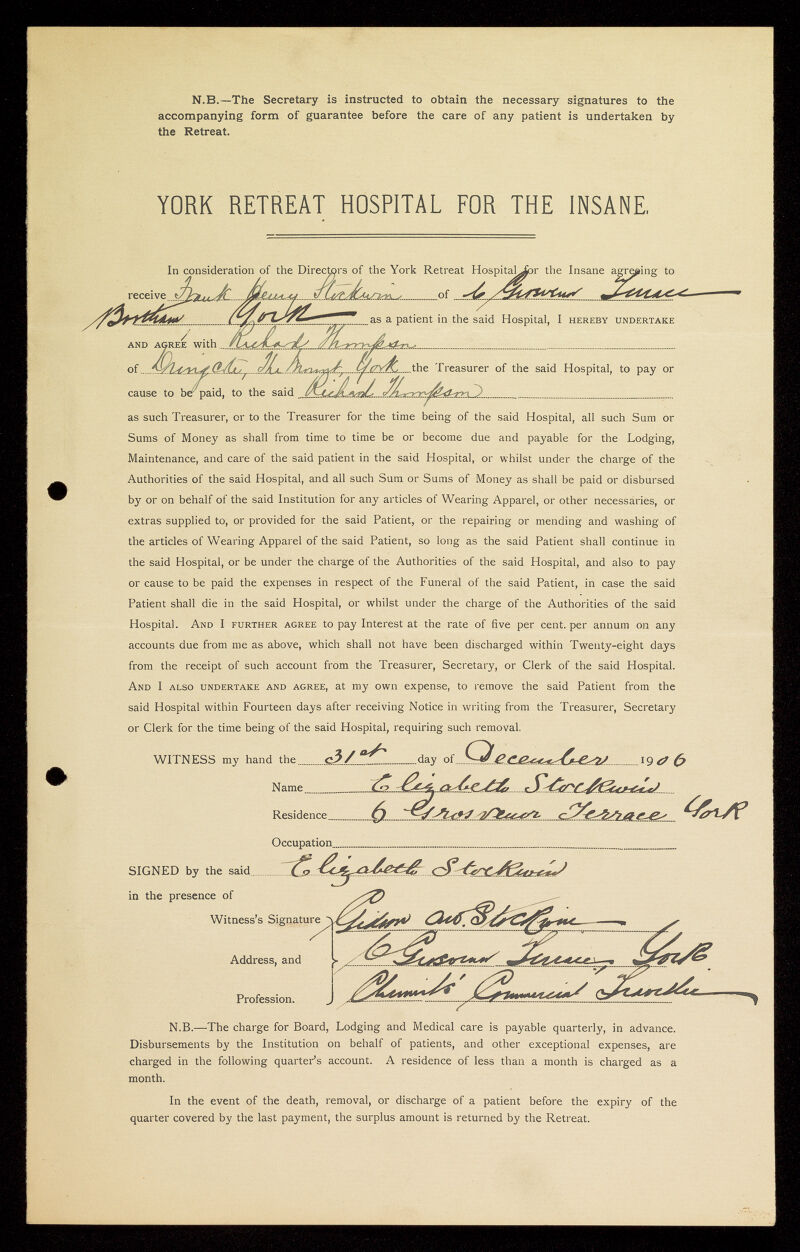 N.B.—The Secretary is instructed to obtain the necessary signatures to the
accompanying form of guarantee before the care of any patient is undertaken by
the Retreat.
YORK RETREAT HOSPITAL FOR THE INSANE.
In consideration of the Directors of the York Retreat Hospital for the Insane agreeing to
receive Frank Henry Stockwin of 6 Grosvenor Terrace
Bootham York as a patient in the said Hospital, I HEREBY UNDERTAKE
AND AGREE with Richard Thompson
of Dringcote, The Mount, York the Treasurer of the said Hospital, to pay or
cause to be paid, to the said Richard Thompson
as such Treasurer, or to the Treasurer for the time being of the said Hospital, all such Sum or
Sums of Money as shall from time to time be or become due and payable for the Lodging,
Maintenance, and care of the said patient in the said Hospital, or whilst under the charge of the
Authorities of the said Hospital, and all such Sum or Sums of Money as shall be paid or disbursed
by or on behalf of the said Institution for any articles of Wearing Apparel, or other necessaries, or
extras supplied to, or provided for the said Patient, or the repairing or mending and washing of
the articles of Wearing Apparel of the said Patient, so long as the said Patient shall continue in
the said Hospital, or be under the charge of the Authorities of the said Hospital, and also to pay
or cause to be paid the expenses in respect of the Funeral of the said Patient, in case the said
Patient shall die in the said Hospital, or whilst under the charge of the Authorities of the said
Hospital. AND I FURTHER AGREE to pay Interest at the rate of five per cent. per annum on any
accounts due from me as above, which shall not have been discharged within Twenty-eight days
from the receipt of such account from the Treasurer, Secretary, or Clerk of the said Hospital.
AND I ALSO UNDERTAKE AND AGREE, at my own expense, to remove the said Patient from the
said Hospital within Fourteen days after receiving Notice in writing from the Treasurer, Secretary
or Clerk for the time being of the said Hospital, requiring such removal.
WITNESS my hand the 31st day of December 1906
Name Elizabeth Stockwin
Residence 6 Grosvenor Terrace York
Occupation
SIGNED by the said Elizabeth Stockwin
in the presence of
Witness's Signature Stockwin
Address, and 6 Grosvenor Terrace, York
Profession. Chemists' Commercial Traveller
N.B.—The charge for Board, Lodging and Medical care is payable quarterly, in advance.
Disbursements by the Institution on behalf of patients, and other exceptional expenses, are
charged in the following quarter's account. A residence of less than a month is charged as a
month.
In the event of the death, removal, or discharge of a patient before the expiry of the
quarter covered by the last payment, the surplus amount is returned by the Retreat.